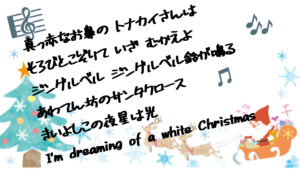 真っ赤なお鼻の トナカイさんは
もろびとこぞりて いざ むかえよ
ジングルベル ジングルベル 鈴が鳴る
あわてん坊のサンタクロース
きよしこの夜星は光
I'm dreaming of a white Christmas